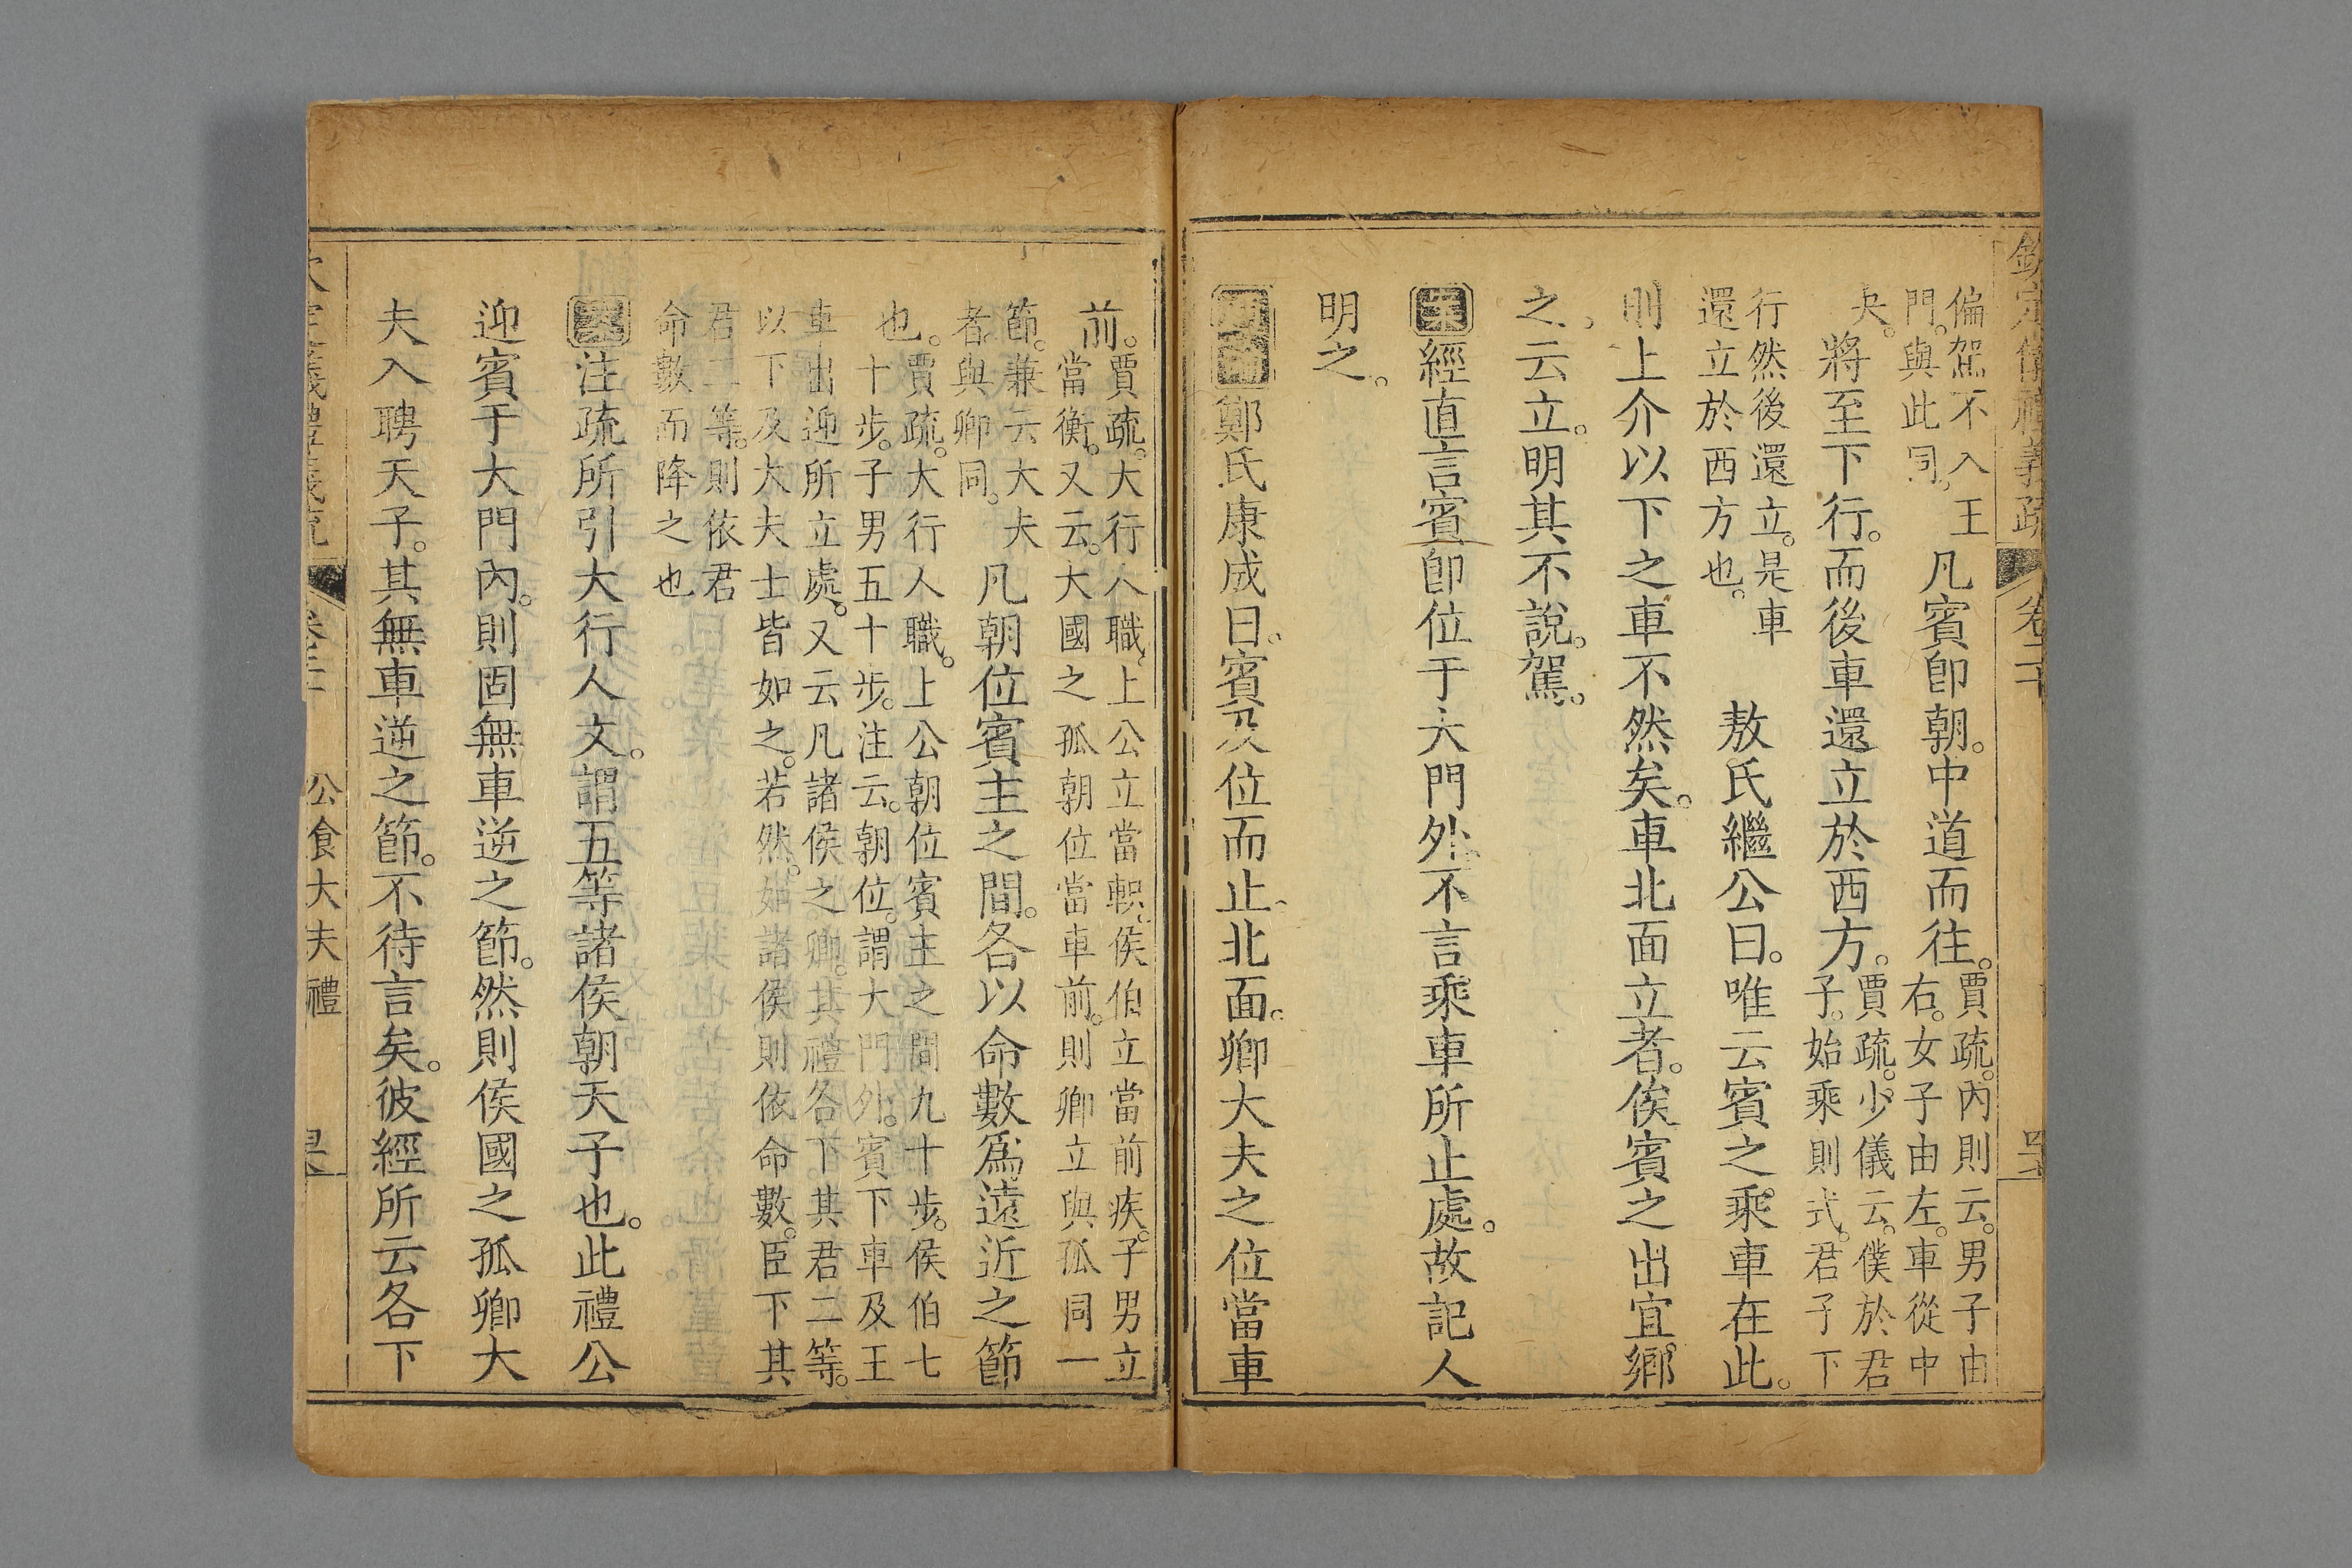 欽定儀禮義疏 卷二十
偏駕不入王
門。與此同。
凡賓卽朝。中道而往。
賈疏。內則云。男子由
右。女子由左。車從中
央。
將至下行。而後車還立於西方。
賈疏。少儀云。僕於君
子。始乘則式。君子下
行然後還立。是車
還立於西方也。
敖氏繼公曰。唯云賓之乘車在此。
則上介以下之車不然矣。車北面立者。俟賓之出宜鄉
之。云立。明其不說。駕。
案經直言賓卽位于大門外。不言乘車所止處。故記人
明之。
通論鄭氏康成曰。賓及位而止。北面。卿大夫之位當車
前。
賈疏。大行人職。上公立當軹。侯伯立當前疾。子男立
當衡。又云。大國之孤朝位當車前。則卿立與孤同一
節。兼云大夫
者。與卿同。
凡朝位賓主之間。各以命數爲遠近之節
也。
賈疏。大行人職。上公朝位賓主之間九十步。侯伯七
十步。子男五十步。注云。朝位。謂大門外。賓下車及王
車出迎。所立處。又云凡諸侯之卿。其禮各下其君二等。
以下及大夫士皆如之。若然。諸侯則依命數。臣下其
君二等。則依君
命數而降之也
案注疏所引大行人文。謂五等諸侯朝天子也。此禮公
迎賓于大門內。則固無車逆之節。然則侯國之孤卿大
夫入聘天子。其無車逆之節。不待言矣。彼經所云各下
公食大夫禮